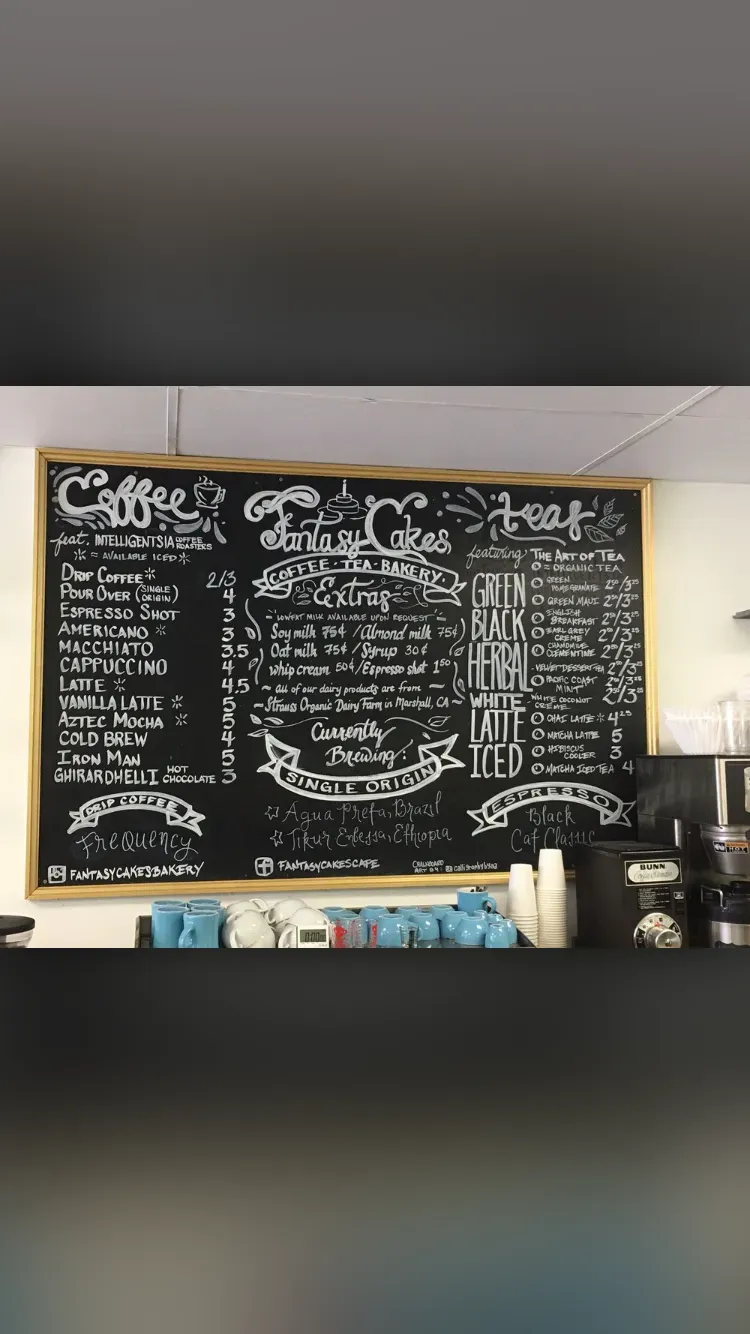 Coffee
feat. INTELLIGENTSIA COFFEE ROASTERS
= AVAILABLE ICED
DRIP COFFEE 2/3
POUR OVER (SINGLE ORIGIN) 4
ESPRESSO SHOT 3
AMERICANO 3
MACCHIATO 3.5
CAPPUCCINO 4
LATTE 4.5
VANILLA LATTE 5
AZTEC MOCHA 5
COLD BREW 4
IRON MAN 5
GHIRARDHELLI HOT CHOCOLATE 3
DRIP COFFEE
FREQUENCY
FANTASYCAKESBAKERY
Fantasy Cakes
COFFEE · TEA · BAKERY
Extras
LOWFAT MILK AVAILABLE UPON REQUEST
Soy milk 75¢ / Almond milk 75¢
Oat milk 75¢ / Syrup 30¢
whip cream 50¢ / Espresso shot 1.50
~ all of our dairy products are from ~
~ Strauss Organic Dairy Farm in Marshall, CA ~
Currently
Brewing:
SINGLE ORIGIN
Agua Preta, Brazil
Tikur Enbessa, Ethiopia
FANTASYCAKESCAFE
CHALKBOARD
ART BY:
teas
featuring THE ART OF TEA
= ORGANIC TEA
GREEN
GREEN POMEGRANATE 2⁵⁰/3²⁵
GREEN MAUI 2⁵⁰/3²⁵
BLACK
ENGLISH BREAKFAST 2⁵⁰/3²⁵
EARL GREY CREME 2⁵⁰/3²⁵
HERBAL
CHAMOMILE CLEMENTINE 2⁵⁰/3²⁵
VELVET DESSERT TEA 2⁵⁰/3²⁵
PACIFIC COAST MINT 2⁵⁰/3²⁵
WHITE
WHITE COCONUT CREME 2⁵⁰/3²⁵
LATTE
CHAI LATTE 4²⁵
MATCHA LATTE 5
ICED
HIBISCUS COOLER 3
MATCHA ICED TEA 4
ESPRESSO
Black
Cat Classic
BUNN